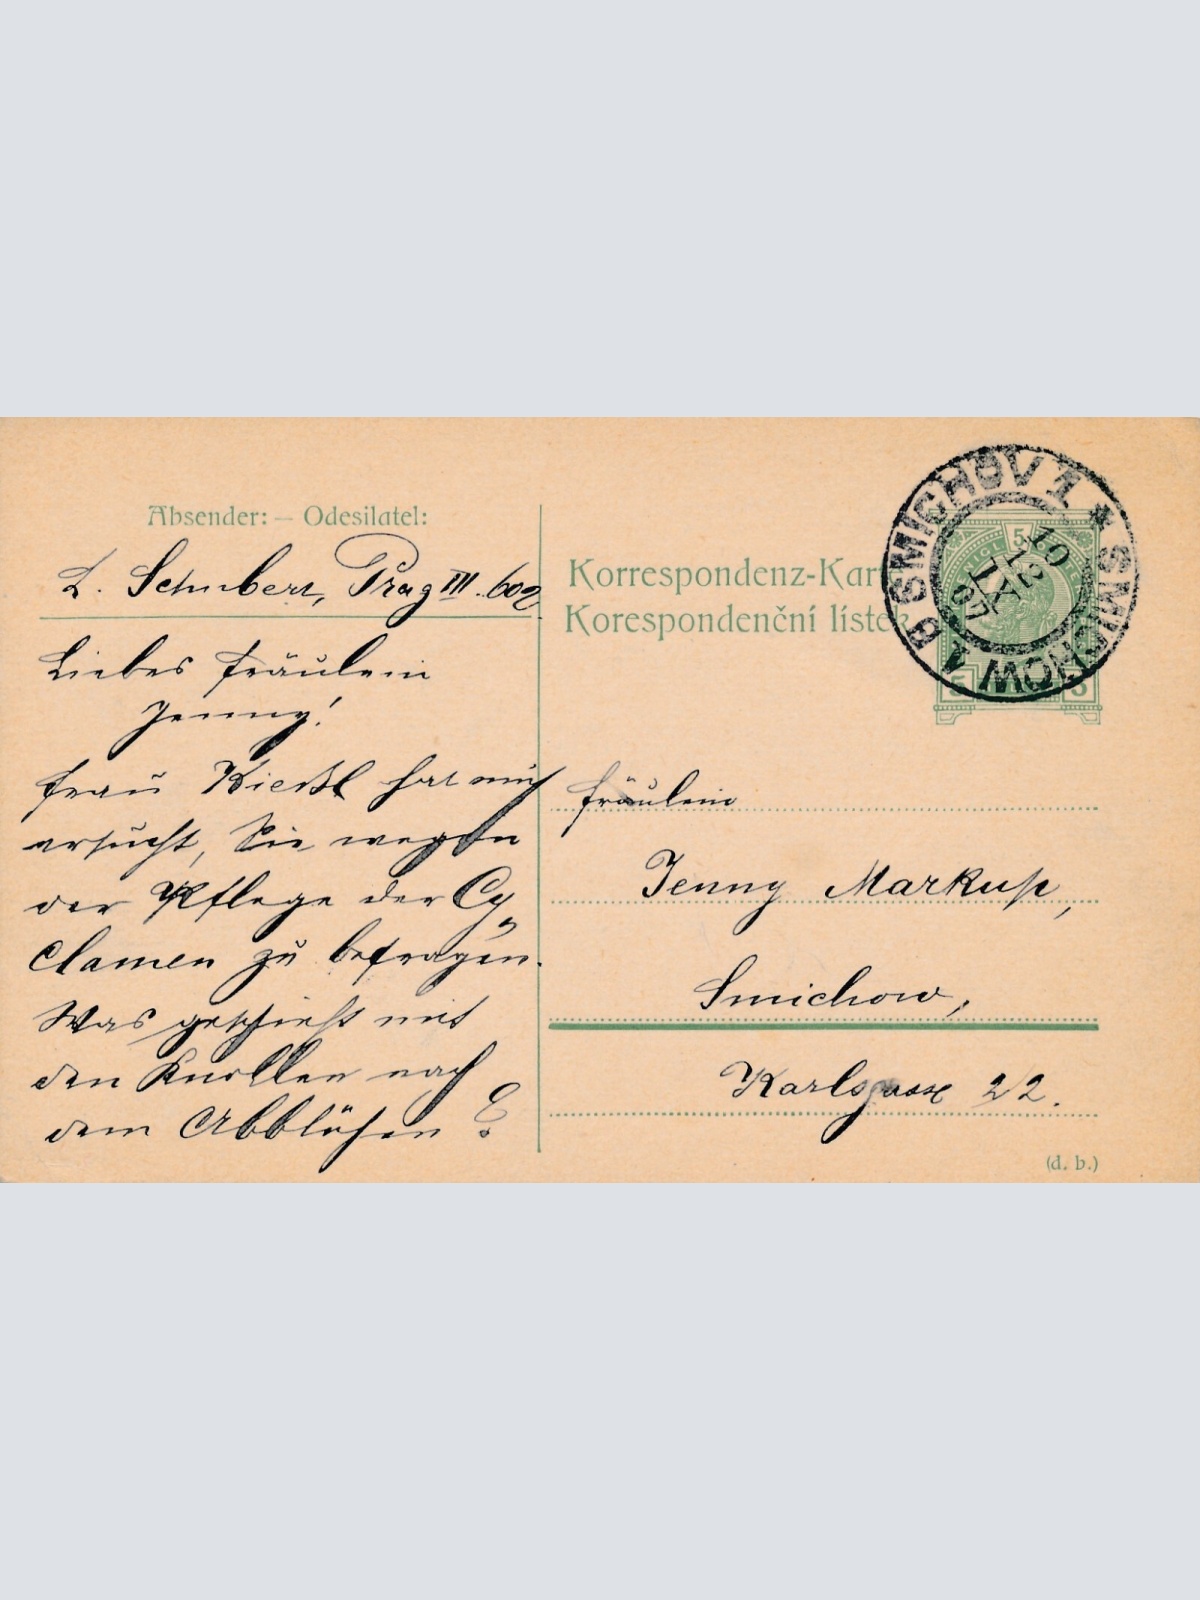 Absender: — Odesílatel:
L. Schubert, Prag III. 602
Liebes Fräulein
Jenny!
Frau hat mich
ersucht, Sie wegen
der Pflege der Cy„
clamen zu befragen.
Was geschieht mit
den Knollen nach
dem Abblühen?
Korrespondenz-Kar
Korespondenční lístek
SMICHOV 1 * SMICHOW 1
10
12
IX
07
5
5 5
Fräulein
Jenny Markup,
Smichow,
Karlsgasse 22.
(d. b.)